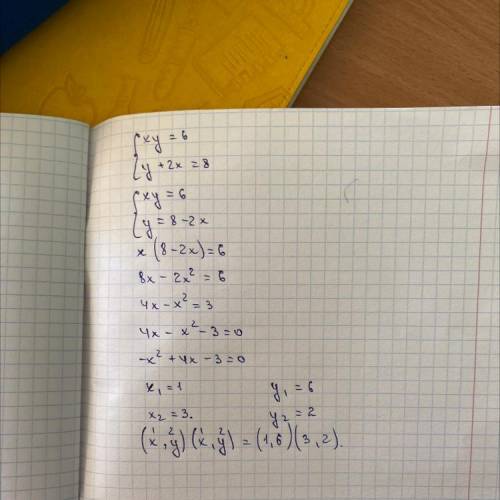 {xy = 6
{y + 2x = 8
{xy = 6
{y = 8 - 2x
x(8 - 2x) = 6
8x - 2x² = 6
4x - x² = 3
4x - x² - 3 = 0
-x² + 4x - 3 = 0
x₁ = 1 y₁ = 6
x₂ = 3. y₂ = 2
(x¹, y²)(x¹, y²) = (1, 6)(3, 2).